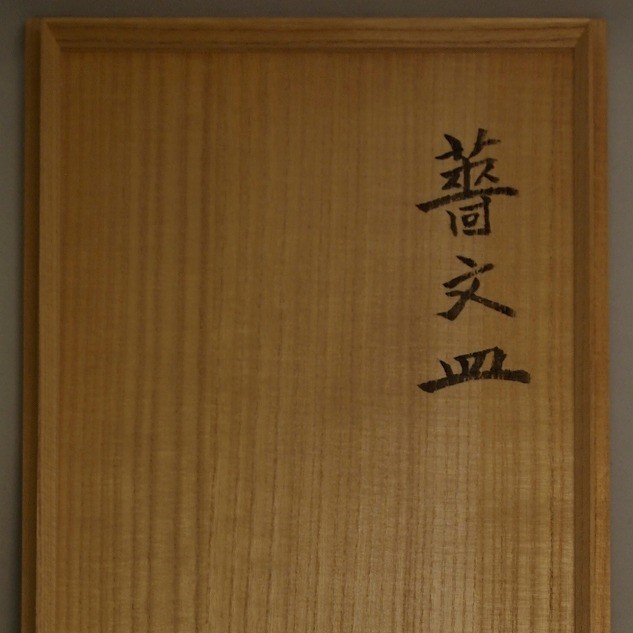 薔文皿